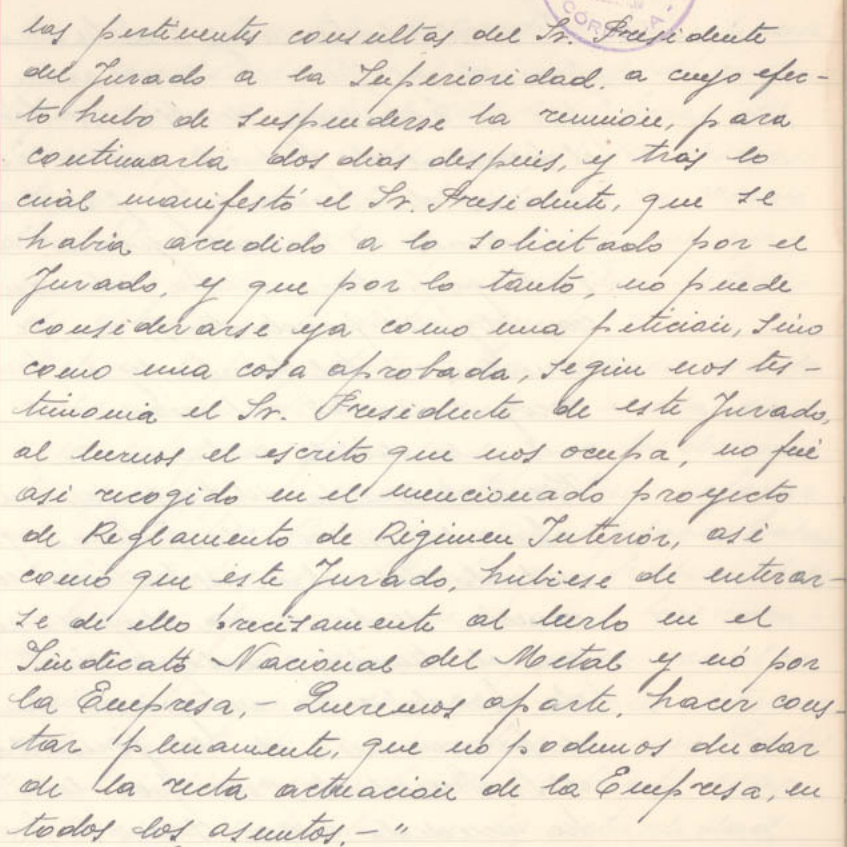 CÓRDOBA
las pertinentes consultas del Sr. Presidente
del Jurado a la Superioridad, a cuyo efec-
to hubo de suspenderse la reunión, para
continuarla dos dias después, y trás lo
cuál manifestó el Sr. Presidente, que se
habia accedido a lo solicitado por el
Jurado, y que por lo tanto, no puede
considerarse ya como una petición, sino
como una cosa aprobada, según nos tes-
timonia el Sr. Presidente de este Jurado,
al leernos el escrito que nos ocupa, no fué
asi recogido en el mencionado proyecto
de Reglamento de Régimen Interior, asi
como que este Jurado, hubiese de enterar-
se de ello precisamente al leerlo en el
Sindicato Nacional del Metal y nó por
la Empresa.- Queremos aparte, hacer cons-
tar plenamente, que no podemos dudar
de la recta actuación de la Empresa, en
todos los asuntos.-"